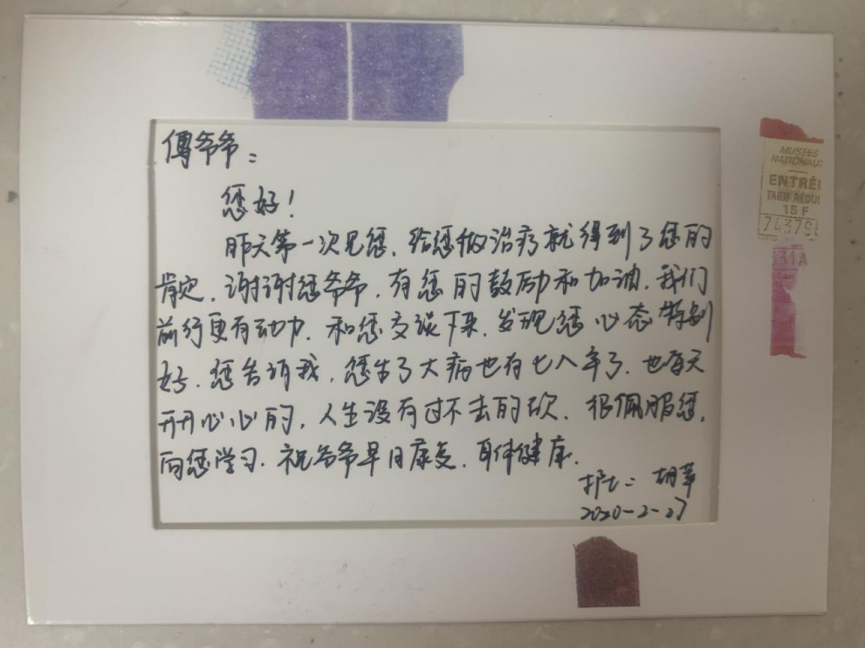 傅爷爷：
您好！
昨天第一次见您，给您做治疗就得到了您的
肯定，谢谢您爷爷，有您的鼓励和加油，我们
前行更有动力，和您交谈下来，发现您心态特别
好，您告诉我，您生了大病也有七八年了，也每天
开开心心的，人生没有过不去的坎，很佩服您，
向您学习，祝爷爷早日康复，身体健康。
护士：胡
2020-2-27
MUSÉES
NATIONAUX
ENTRÉE
TARIF RÉDUIT
15 F